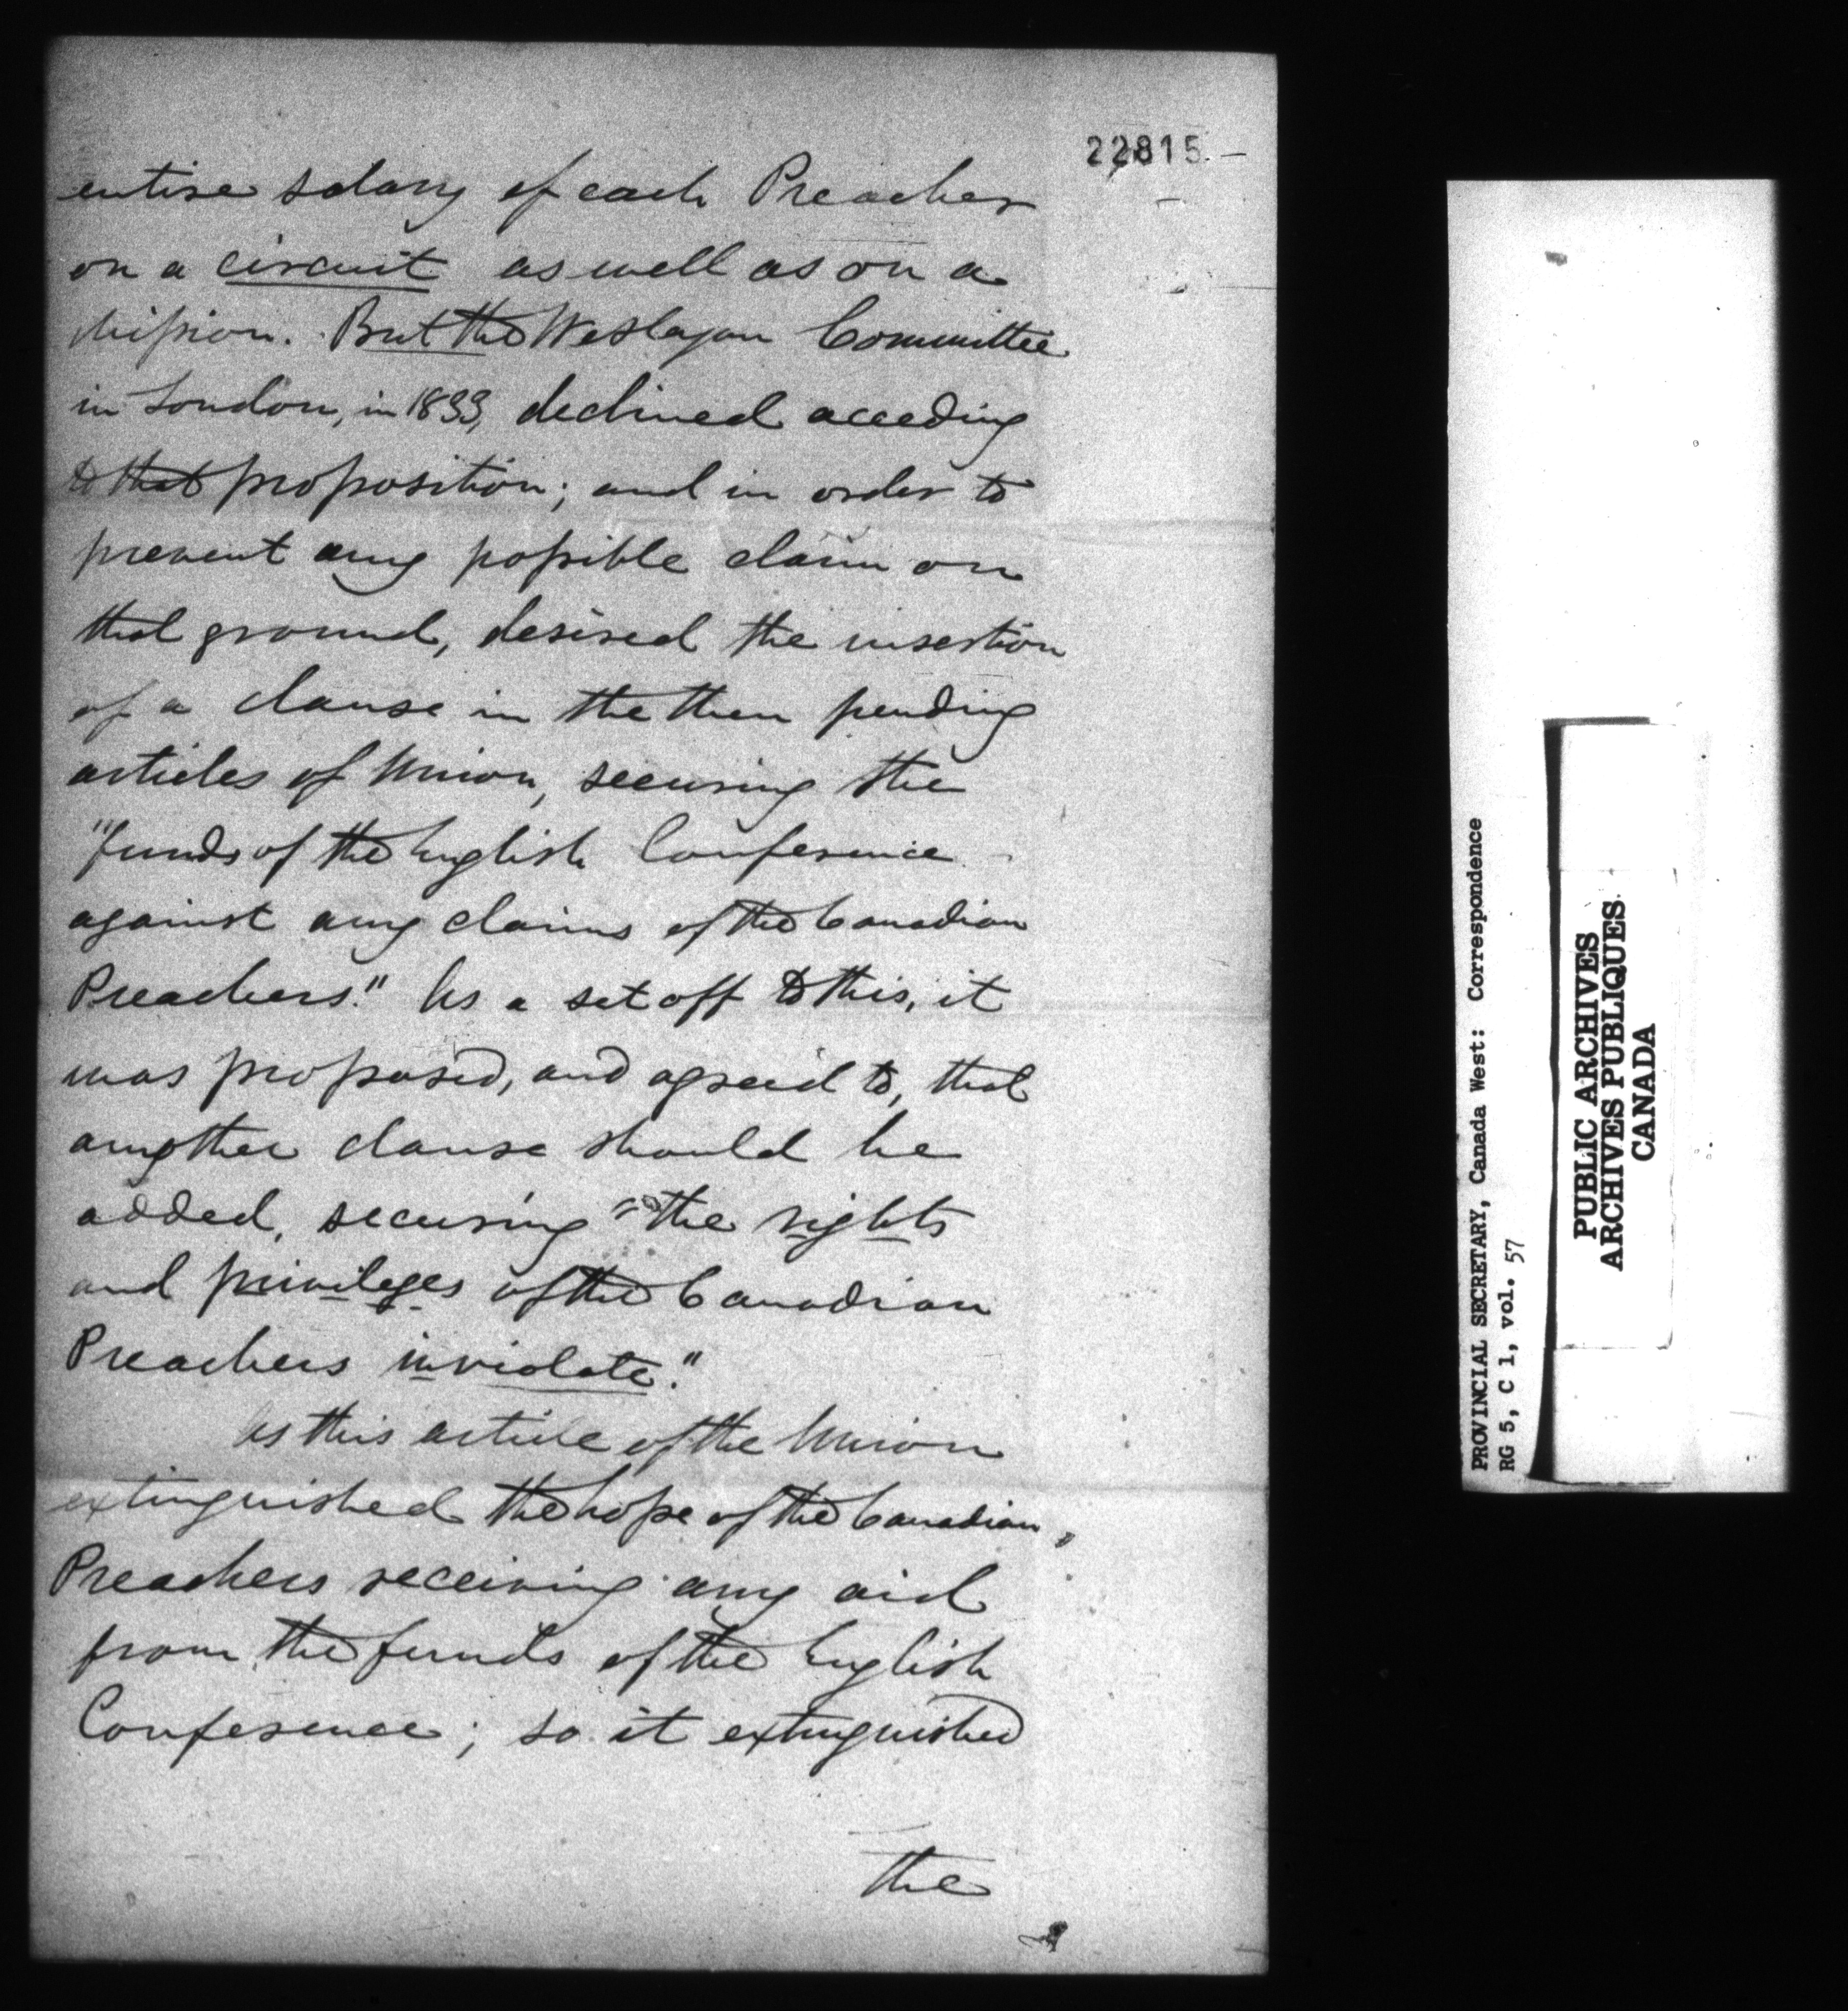 22815.—
entire salary of each Preacher
on a circuit as well as on a
Mission. But the Weslayan Committee
in London, in 1833, declined acceeding
to that proposition; and in order to
prevent any possible claim on
that ground, desired the insertion
of a clause in the then pending
articles of Union, securing the
"funds of the English Conference
against any claims of the Canadian
Preachers." As a set off to this, it
was proposed, and agreed to, that
another clause should be
added, securing "the rights
and privileges of the Canadian
Preachers inviolate."
As this article of the Union
extinguished the hope of the Canadian
Preachers receiving any aid
from the funds of the English
Conference; so it extinguished
the
PROVINCIAL SECRETARY, Canada West: Correspondence
RG 5, C 1, vol. 57
PUBLIC ARCHIVES
ARCHIVES PUBLIQUES
CANADA